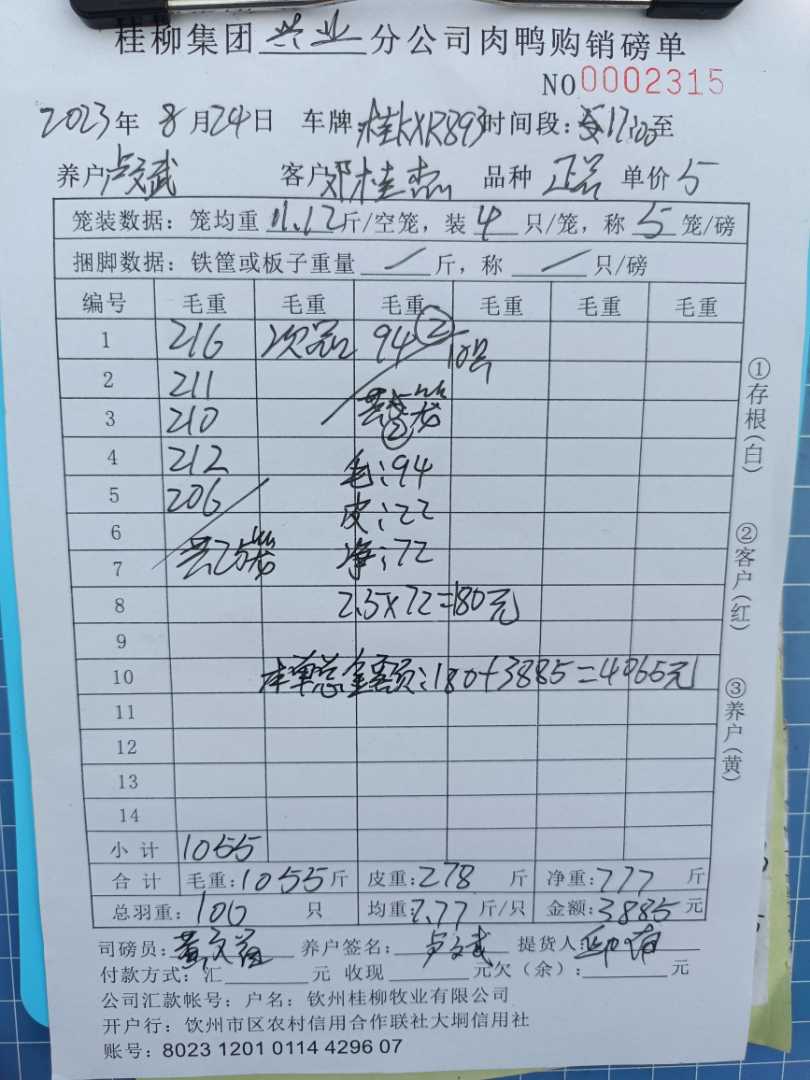 桂柳集团兴业分公司肉鸭购销磅单
NO0002315
2023年8月24日 车牌:桂KXR893时间段:17:00至
养户卢文武 客户邓桂杰 品种正品 单价5
笼装数据：笼均重11.12斤/空笼，装4只/笼，称5笼/磅
捆脚数据：铁筐或板子重量/斤，称/只/磅
编号 毛重 毛重 毛重 毛重 毛重 毛重
1 216 次品 94② 10只
2 211
3 210
4 212 毛:94
5 206 皮:22
6
7 共25笼 净:72
8 2.5×72=180元
9
10 本单总金额:180+3885=4065元
11
12
13
14
小计 1055
合计 毛重:1055斤 皮重:278斤 净重:777斤
总羽重:100只 均重:7.77斤/只 金额:3885元
司磅员: 养户签名:卢文武 提货人:
付款方式：汇 元 收现 元欠（余）: 元
公司汇款帐号：户名：钦州桂柳牧业有限公司
开户行：钦州市区农村信用合作联社大垌信用社
账号：8023 1201 0114 4296 07
①存根(白)
②客户(红)
③养户(黄)